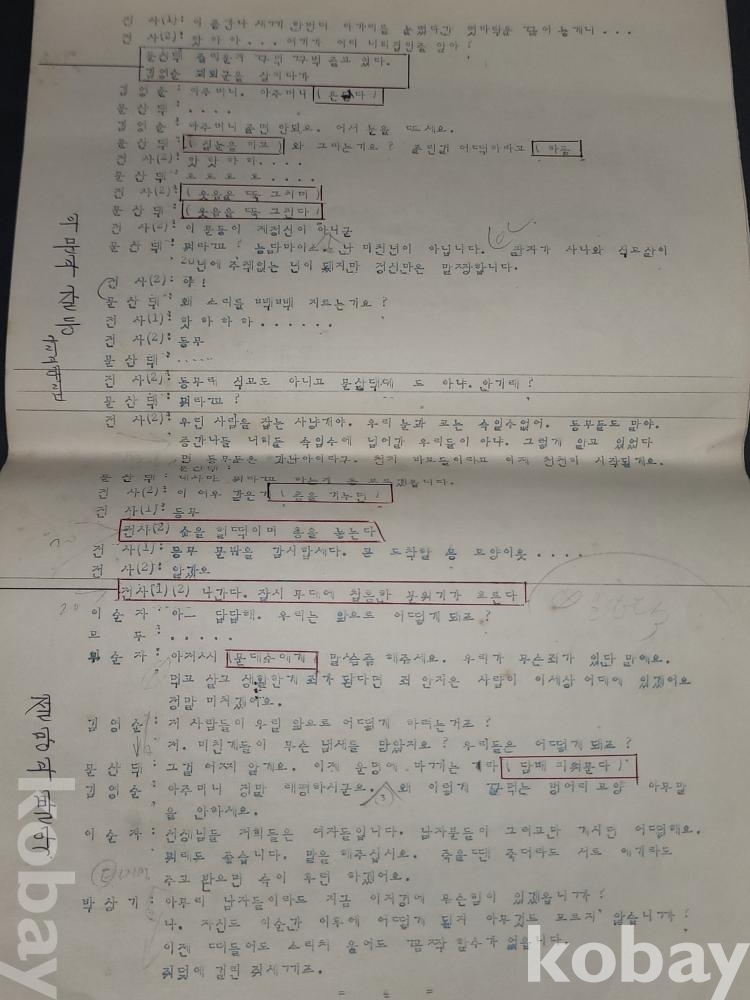 전 사(2): 핫 하 하 ... 여기가 어디 너희집인줄 알아?
문산댁 졸리운지 꾸벅 꾸벅 졸고 있다.
김영순 괴뢰군을 살피다가
김 영 순: 아주머니. 아주머니 (흔든다)
문 산 댁: ....
김 영 순: 아주머니 졸면 안되요. 어서 눈을 뜨세요.
문 산 댁: (실눈을 하고) 와 그라는기요? 졸린걸 어떡하라고 (하품
전 사(2): 핫 핫 하 하....
문 산 댁: 호 호 호 호 ....
전 사(2): (웃음을 뚝 그치며)
문 산 댁: (웃음을 뚝 그친다)
전 사(2): 이 분들이 제정신이 아니군
문 산 댁: 뭐라꼬? 농담마이소. 난 미친년이 아닙니다. 팔자가 사나와 식모살이
20년에 주책없는 년이 됐지만 정신만은 말짱합니다.
전 사(2): 야!
문 산 댁: 왜 소리를 빽빽 지르는기요?
전 사(1): 핫 하 하 하 ......
전 사(2): 동무
문 산 댁: .....
전 사(2): 동무레 식모도 아니고 문산댁두 아냐. 안기래?
문 산 댁: 뭐라꼬?
전 사(2): 우린 사람을 잡는 사냥개야. 우리 눈과 코는 속일수없어. 동무들도 말야.
쫑간나들 너희들 속임수에 넘어갈 우리들이 아냐. 그렇게 알고 있었다
면 동무들은 갓난아이다구. 천치 바보들이라고 이제 천천히 시작될게요.
전 사(2): 이 여우 같은기 (총을 겨누면)
전 사(1): 동무
전사(2) 숨을 헐떡이며 총을 놓는다
전 사(1): 동무 문밖을 감시합세다. 곧 도착할 용 모양이웃 ....
전 사(2): 알갔오
전사(1)(2) 나간다. 잠시 무대에 침통한 분위기가 흐른다
이 순 자: 아— 답답해. 우리는 앞으로 어떻게 돼죠?
모 두: .....
이 순 자: 아저씨 (문대수에게) 말씀좀 해주세요. 우리가 무슨죄가 있단 말예요.
먹고 살고 생활한게 죄가 된다면 죄 안지은 사람이 이세상 어데에 있겠어요
정말 미치겠어요.
김 영 순: 저 사람들이 우릴 앞으로 어떻게 하려는거죠?
저. 미친개들이 무슨 냄새를 맡았지요? 우리들은 어떻게 돼죠?
문 산 댁: 그걸 어찌 알게요. 이젠 운명에 맡기는 기라 (담배 피워문다)
김 영 순: 아주머니 정말 태평하시군요. 왜 이렇게 꿀먹은 벙어리 모양 아무말
을 안하세요.
이 순 자: 선생님들 저희들은 여자들입니다. 남자분들이 그러고만 계시면 어떡해요.
뭐라도 좋습니다. 말을 해주십시요. 죽을땐 죽더라도 서로 얘기라도
주고 받으면 속이 후련 하겠어요.
박 상 기: 아무리 남자들이라도 지금 이지경에 무슨힘이 있겠읍니까?
나. 자신도 이순간 이후에 어떻게 될지 아무것도 모르지 않습니까?
이젠 떠들어도 소리쳐 울어도 꼼짝 할수가 없읍니다.
쥐덫에 걸린 쥐새끼죠.
kobay
kobay